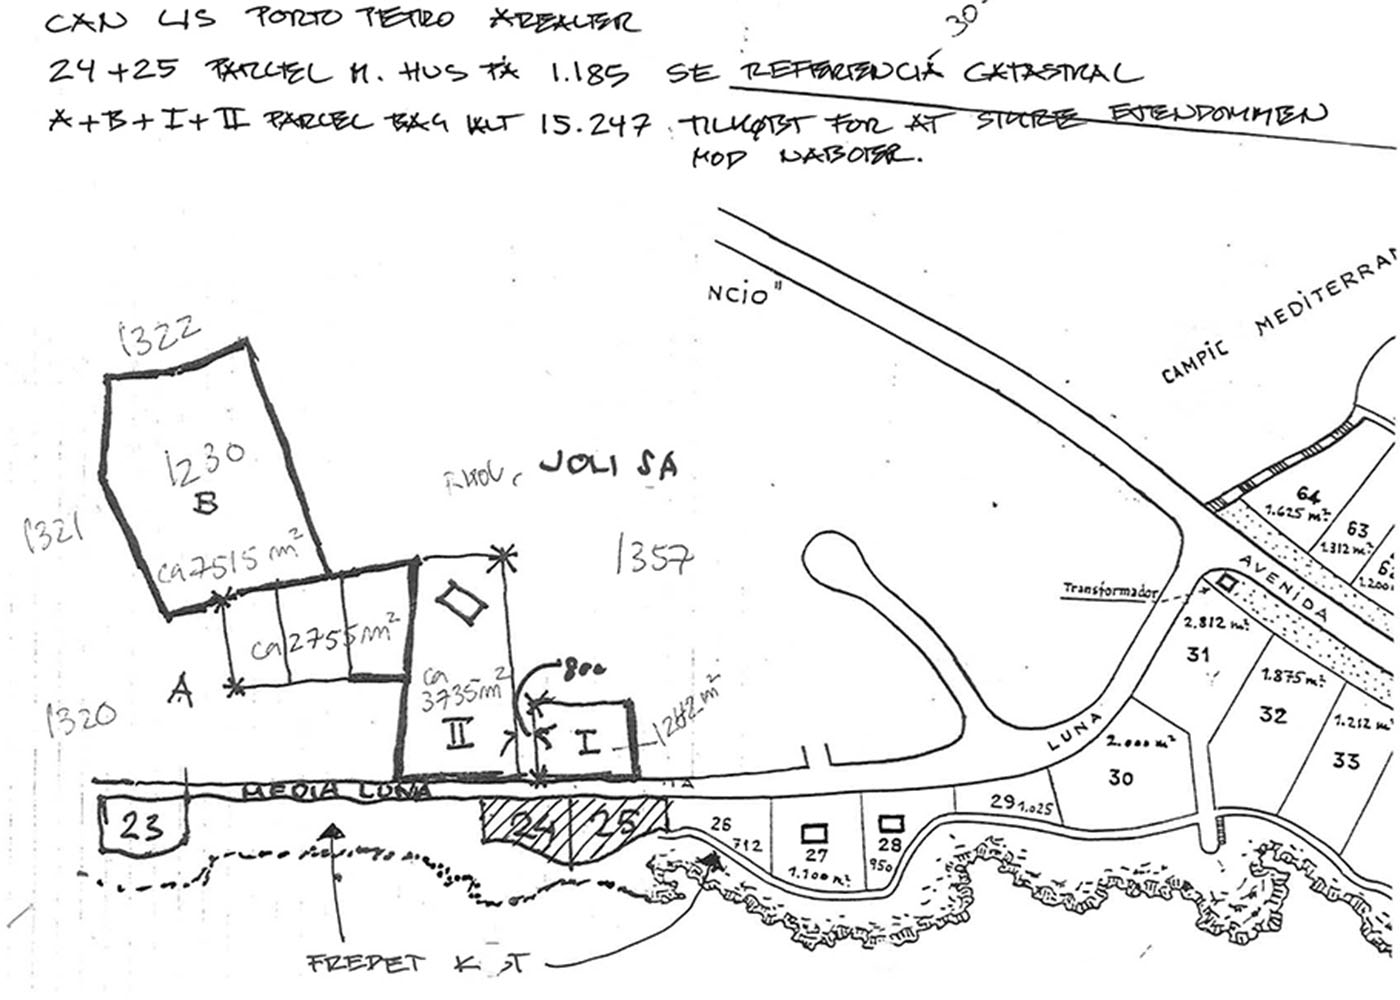 CAN LIS PORTO PETRO AREALER
30
24+25 PARCEL M. HUS PÅ 1.185 SE REFERENCIA CATASTRAL
A+B+I+II PARCEL BAG IALT 15.247 TILKØBT FOR AT SIKRE EJENDOMMEN
MOD NABOER.
NCIO"
CAMPIC MEDITERRA
1322
1230
B
JOLI SA
1321
ca 7515 m²
1357
64
1.625 m²
63
1.312 m²
1.200
AVENIDA
Transformador
2.812 m²
31
ca 2755 m²
A
ca
3735 m²
II
800
I
1242 m²
1320
1.875 m²
32
1.212 m²
33
LUNA
2.000 m²
30
MEDIA LUNA
23
24
25
26
712
27
1.100 m²
28
950
29 1.025
FREDET K ST